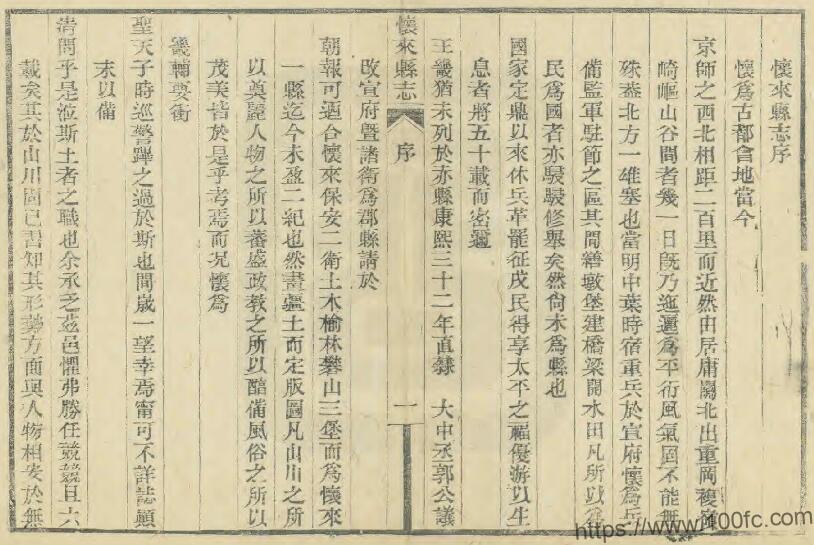 懷來縣志序
懷爲古都會地當今
京師之西北相距二百里而近然由居庸關北出重岡複
崎嶇山谷間者幾一日旣乃迤邐爲平衍風氣固不能無
殊葢北方一雄塞也當明中葉時宿重兵於宣府懷爲兵
備監軍駐節之區其間繕墩堡建橋梁開水田凡所以
民爲國者亦駸駸修舉矣然尙未爲縣也
國家定鼎以來休兵革罷征戍民得享太平之福優游以生
息者將五十載而密邇
王畿猶未列於赤縣康熙三十二年直隸　大中丞郭公議
懷來縣志
序
一
改宣府暨諸衛爲郡縣請於
朝報可遒合懷來保安二衛土木榆林礬山三堡而爲懷來
一縣迄今未盈二紀也然畫疆土而定版圖凡山川之所
以奠麗人物之所以蕃盛政敎之所以備風俗之所以
茂美皆於是乎考焉而况懷爲
畿輔要衝
聖天子時巡警蹕之過於斯也間歲一望幸焉甯可不詳誌顚
末以備
淸問乎是涖斯土者之職也余承乏茲邑懼弗勝任兢兢且六
載矣其於山川固已書知其形勢方面與人物相安於無
https://www.f100fc.com